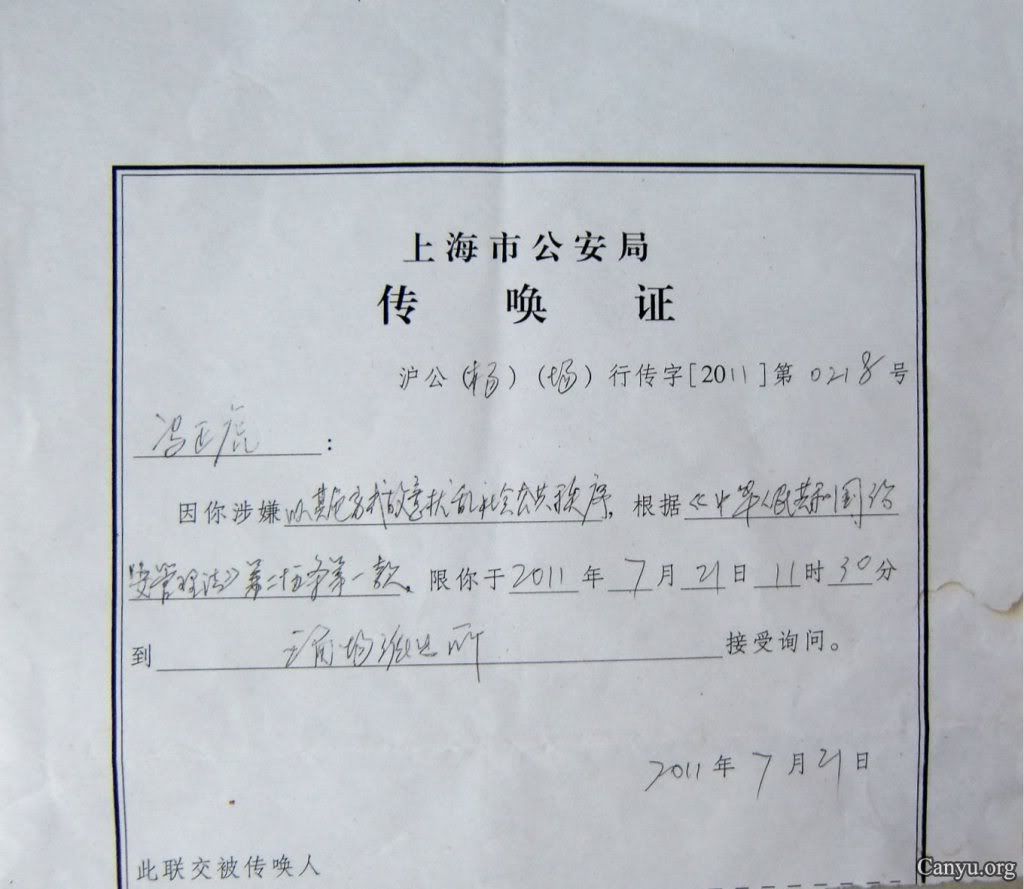 上海市公安局
传 唤 证
沪公（杨）（场）行传字[2011]第 0218 号
冯正虎：
因你涉嫌以其它方式故意扰乱社会公共秩序，根据《中华人民共和国治
安管理法》第二十五条第一款，限你于2011年7月21日11时30分
到 派出所 接受询问。
2011年7月21日
此联交被传唤人
Canyu.org